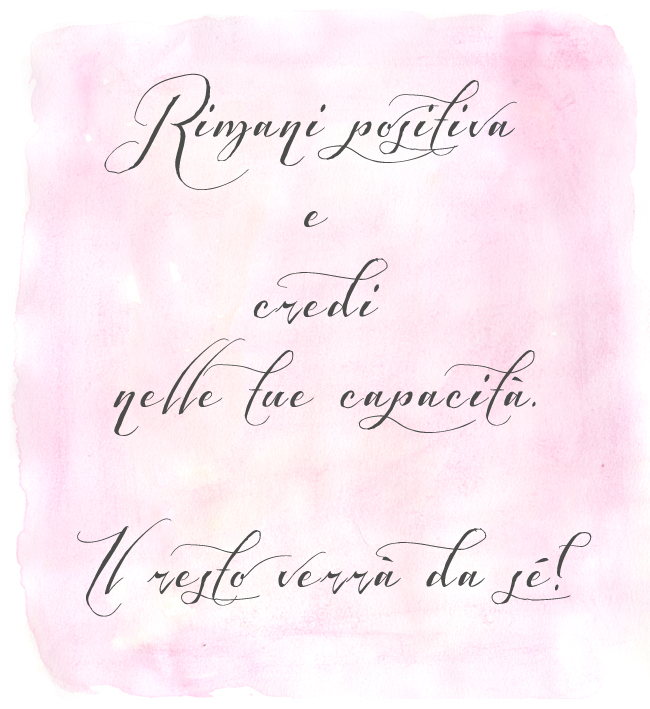 Rimani positiva
e
credi
nelle tue capacità.
Il resto verrà da sé!